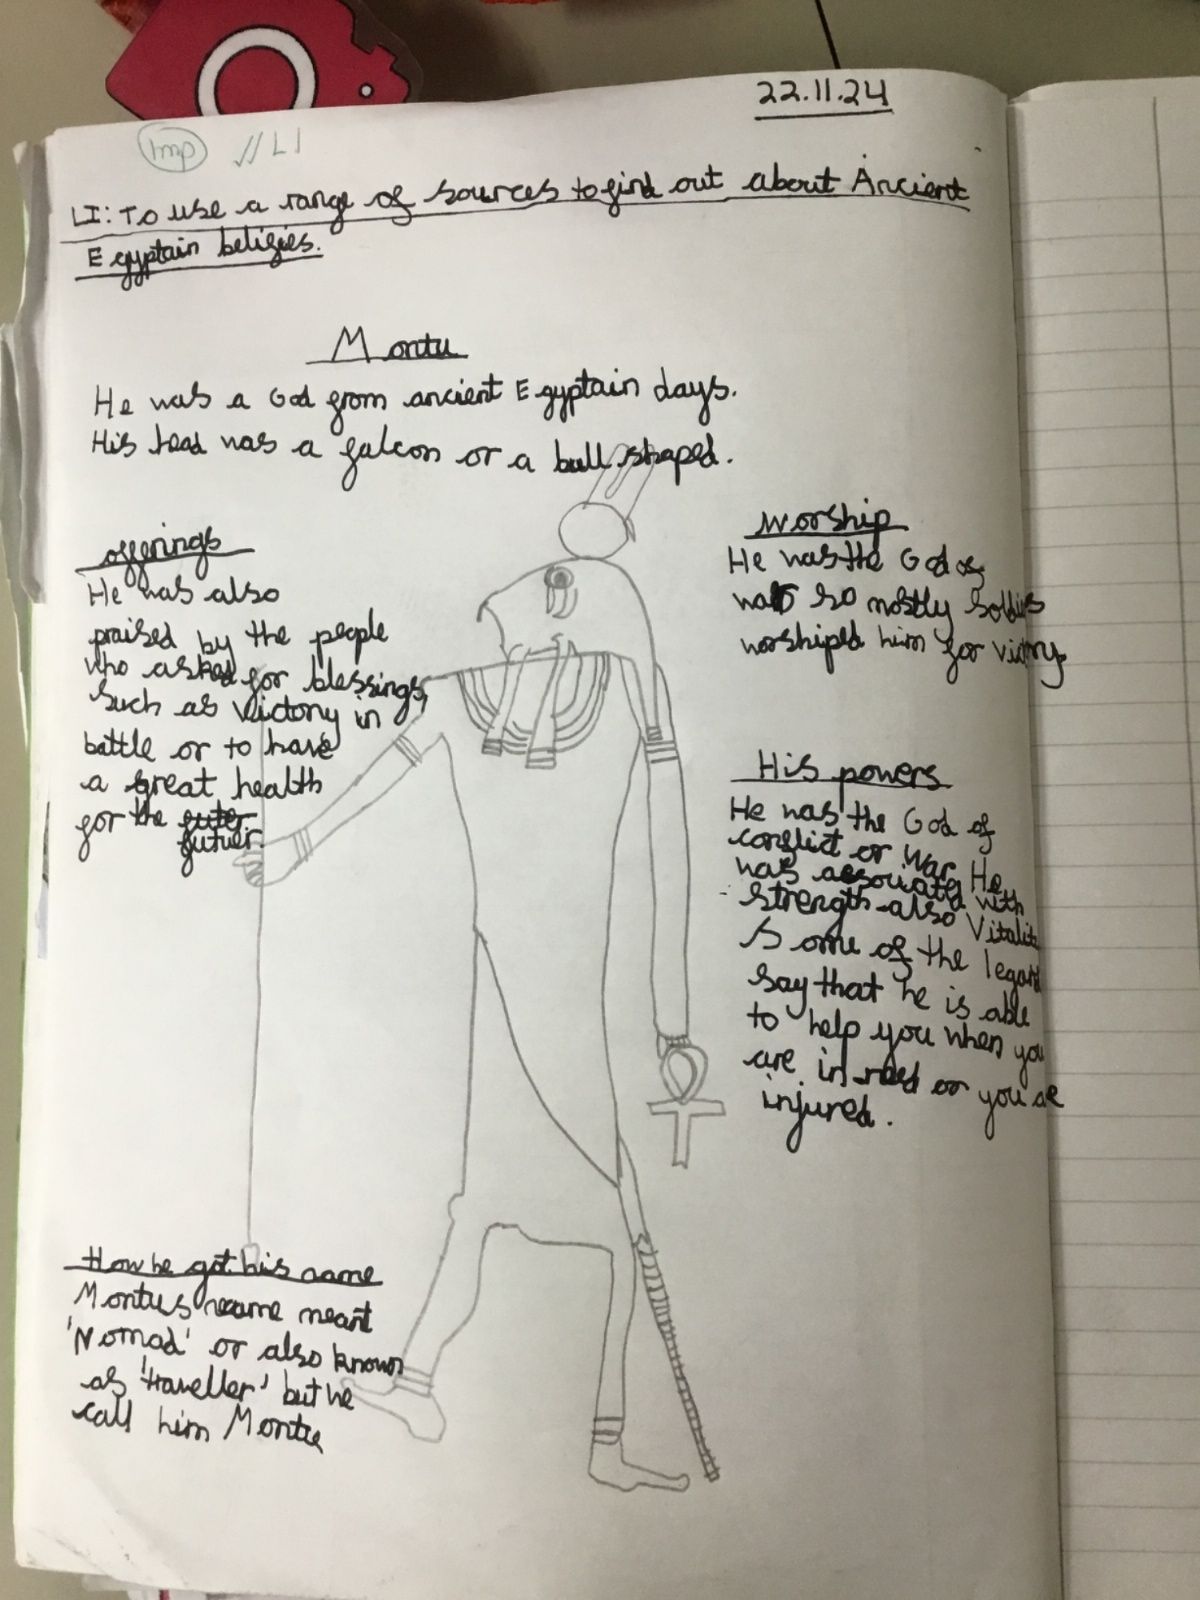 22.11.24
Imp ✓✓ LI
LI: To use a range of sources to find out about Ancient
Egyptain beligies.
Montu
He was a God from ancient Egyptain days.
His head was a falcon or a bull shaped.
offerings
He was also
praised by the people
who asked for blessings,
such as victory in
battle or to have
a great health
for the futer
futuer.
worship
He was the God of
war so mostly soldiers
worshiped him for victory
His powers
He was the God of
conflict or War. He
was associated with
strength also Vitality
Some of the legand
say that he is able
to help you when you
are in need or you are
injured.
How he got his name
Montus name meant
'Nomad' or also known
as 'traveller' but he
call him Montu